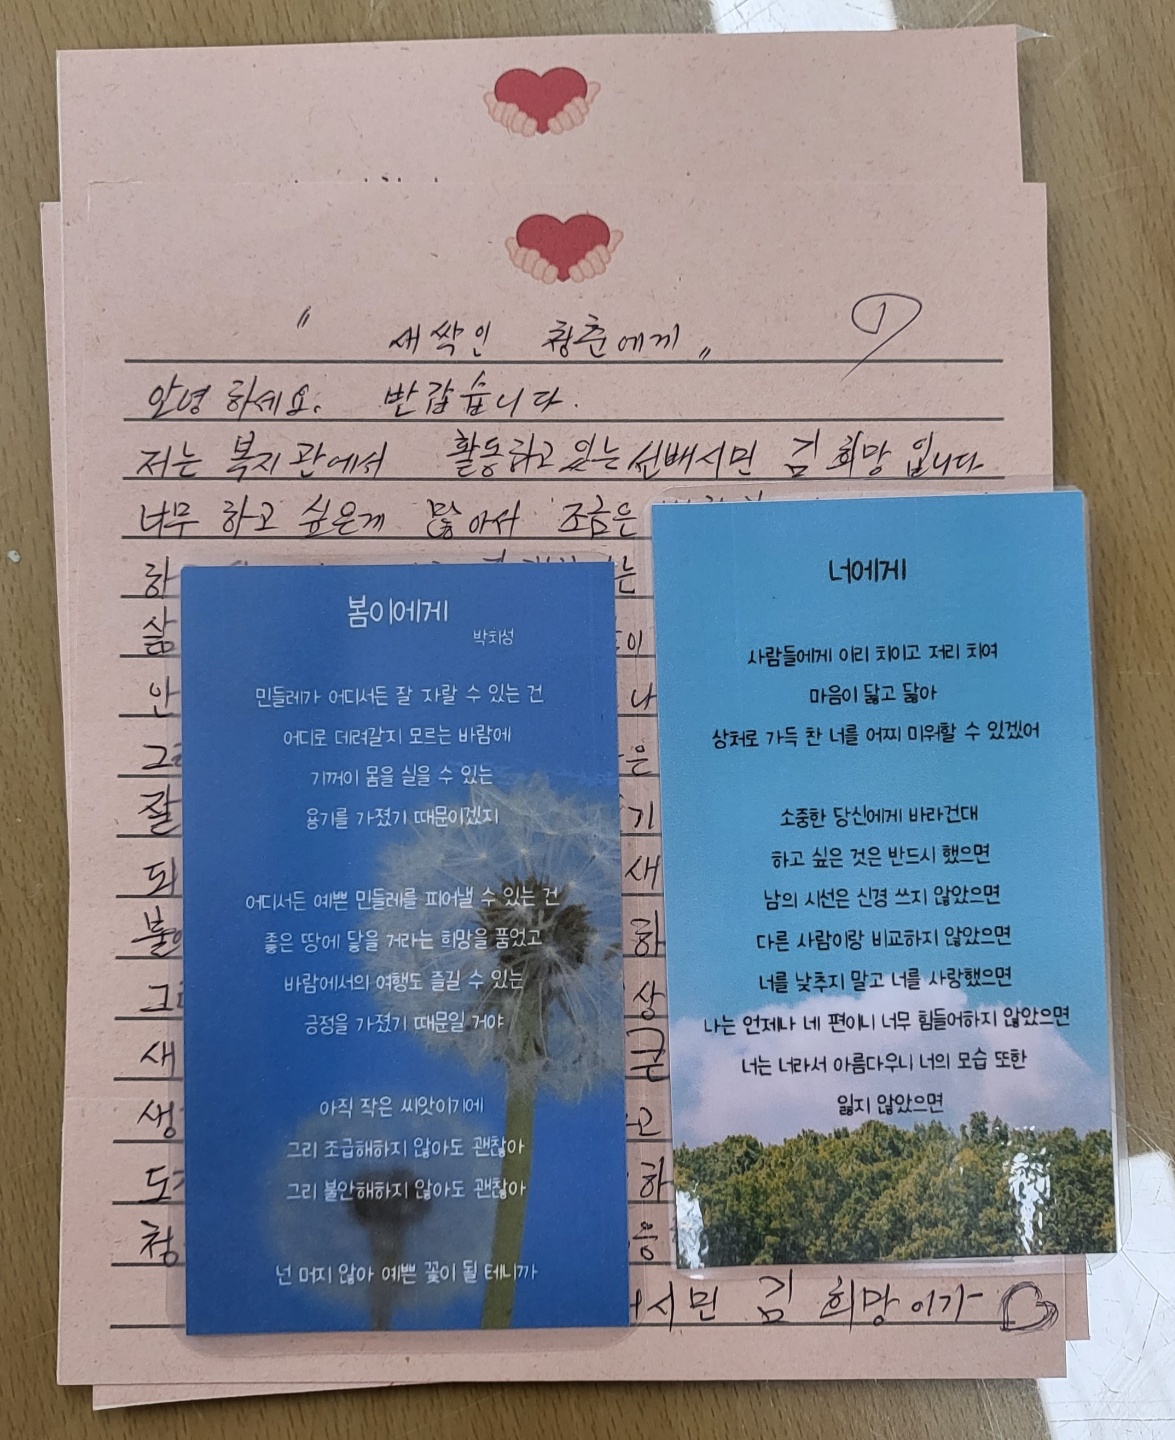 " 새싹인 청춘에게 "
①
안녕하세요. 반갑습니다.
저는 복지관에서 활동하고 있는 선배시민 김희망 입니다
너무 하고 싶은게 많아서 조금은
하
는
삶
안
나
은
잘
기
되
새
하
상
새
큰
생
고
하
청
응
시민 김 희망이가
봄이에게
박치성
민들레가 어디서든 잘 자랄 수 있는 건
어디로 데려갈지 모르는 바람에
기꺼이 몸을 실을 수 있는
용기를 가졌기 때문이겠지
어디서든 예쁜 민들레를 피어낼 수 있는 건
좋은 땅에 닿을 거라는 희망을 품었고
바람에서의 여행도 즐길 수 있는
긍정을 가졌기 때문일 거야
아직 작은 씨앗이기에
그리 조급해하지 않아도 괜찮아
그리 불안해하지 않아도 괜찮아
넌 머지 않아 예쁜 꽃이 될 테니까
너에게
사람들에게 이리 치이고 저리 치여
마음이 닳고 닳아
상처로 가득 찬 너를 어찌 미워할 수 있겠어
소중한 당신에게 바라건대
하고 싶은 것은 반드시 했으면
남의 시선은 신경 쓰지 않았으면
다른 사람이랑 비교하지 않았으면
너를 낮추지 말고 너를 사랑했으면
나는 언제나 네 편이니 너무 힘들어하지 않았으면
너는 너라서 아름다우니 너의 모습 또한
잃지 않았으면